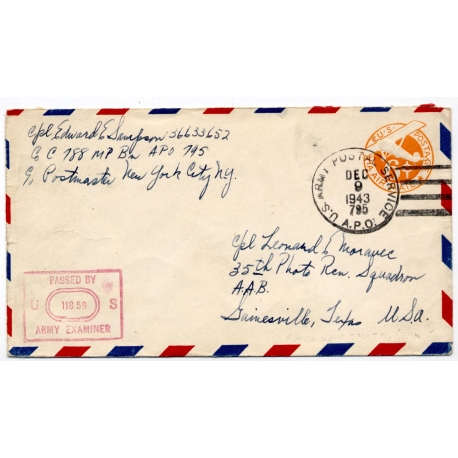 Cpl Edward E Sampson 36633652
C C 788 MP Bn APO 795
c/o Postmaster New York City N.Y.
U.S. POSTAGE
VIA AIR
U.S. ARMY POSTAL SERVICE
DEC
9
1943
795
A.P.O.
Cpl Leonard L Moravec
35th Photo Rcn. Squadron
A.A.B.
Gainesville, Texas USa.
PASSED BY
U 11859 S
ARMY EXAMINER